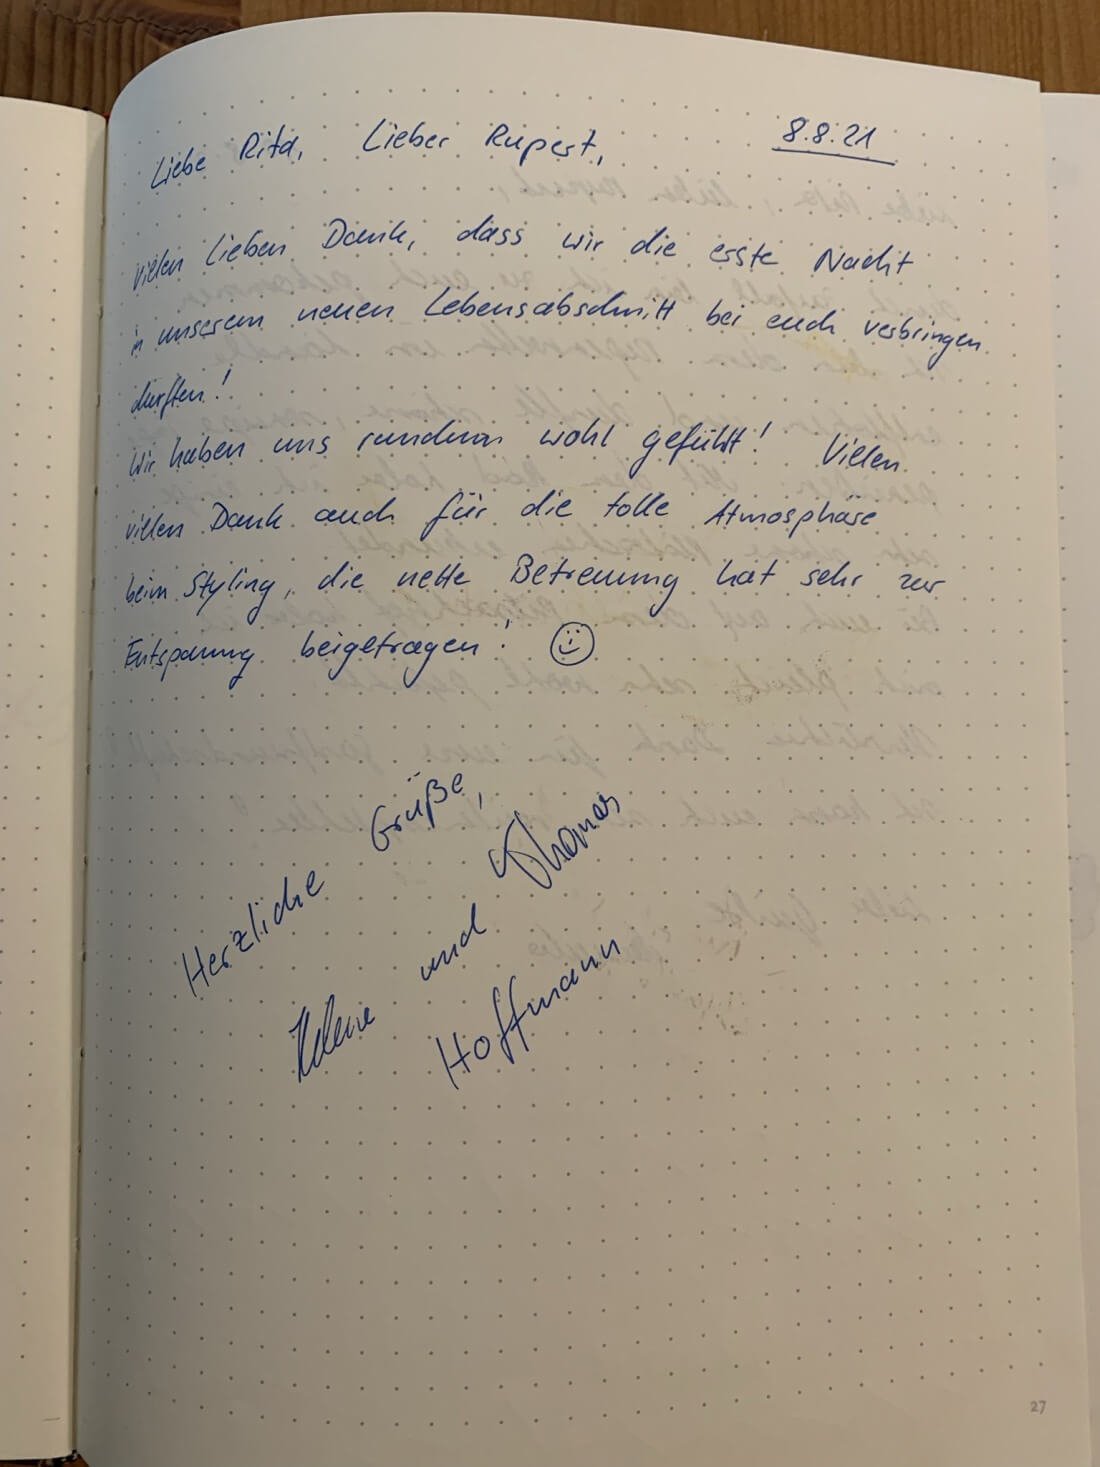 Liebe Rita, Lieber Rupert, 8.8.21
vielen lieben Dank, dass wir die erste Nacht
in unserem neuen Lebensabschnitt bei euch verbringen
durften!
Wir haben uns rundum wohl gefühlt! Vielen
vielen Dank auch für die tolle Atmosphäre
beim Styling, die nette Betreuung hat sehr zur
Entspannung beigetragen! ☺
Herzliche Grüße,
und Thomas
Hoffmann
27